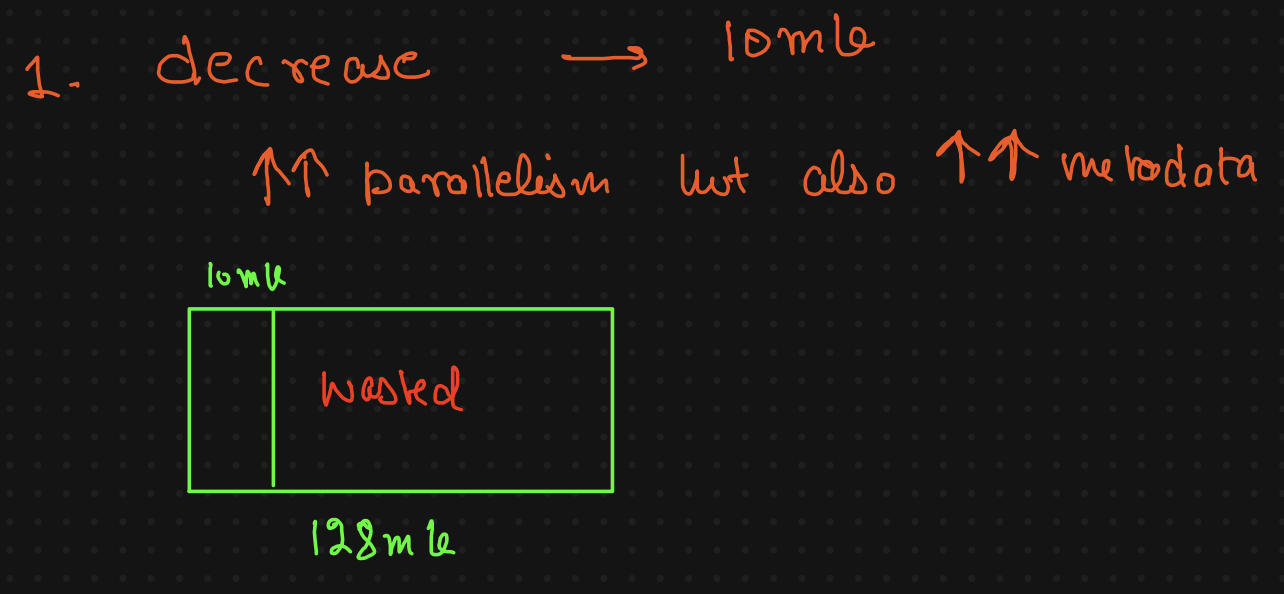 1. decrease → 10mb
↑↑ parallelism but also ↑↑ metadata
10mb
wasted
128mb